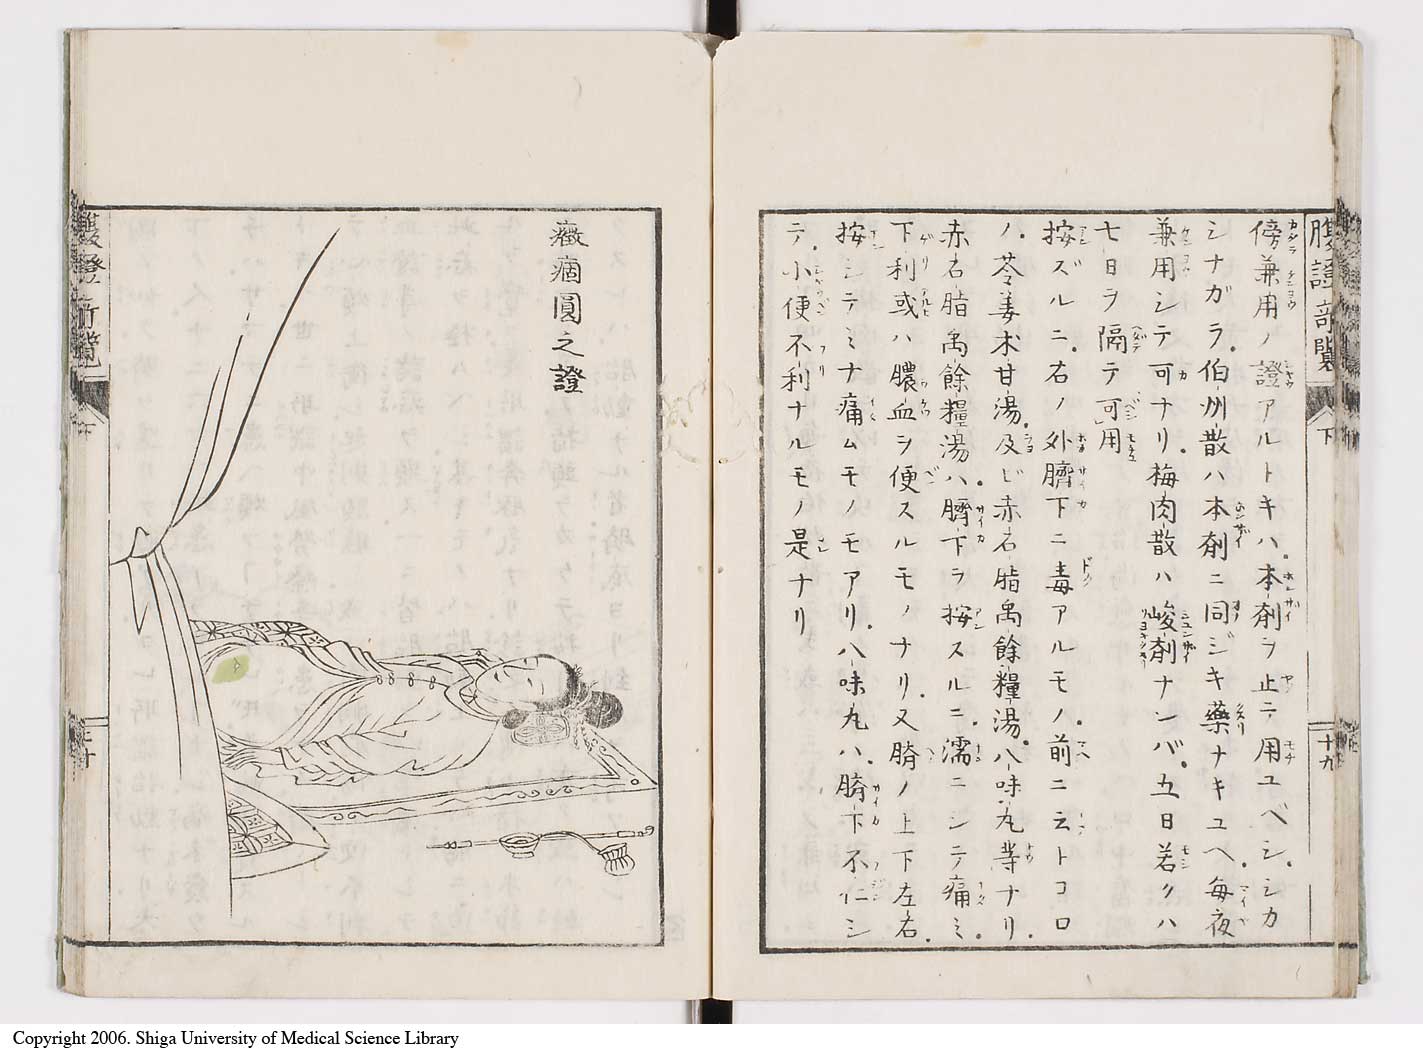 腹證奇覽
下
十九
傍兼用ノ證アルトキハ、本劑ヲ止テ用ユベシ、シカ
シナガラ、伯州散ハ本劑ニ同ジキ藥ナキユヘ、毎夜
兼用シテ可ナリ、梅肉散ハ峻劑ナレバ、五日若クハ
七日ヲ隔テ可用
按ズルニ、右ノ外臍下ニ毒アルモノ、前ニ云トコロ
ノ、苓姜朮甘湯及ビ赤石脂禹餘糧湯、八味丸等ナリ、
赤石脂禹餘糧湯ハ、臍下ヲ按スルニ濡ニシテ痛ミ
下利或ハ膿血ヲ便スルモノナリ、又臍ノ上下左右、
按シテミナ痛ムモノモアリ、八味丸ハ、臍下不仁シ
テ、小便不利ナルモノ是ナリ
癥痼圓之證
下
Copyright 2006. Shiga University of Medical Science Library